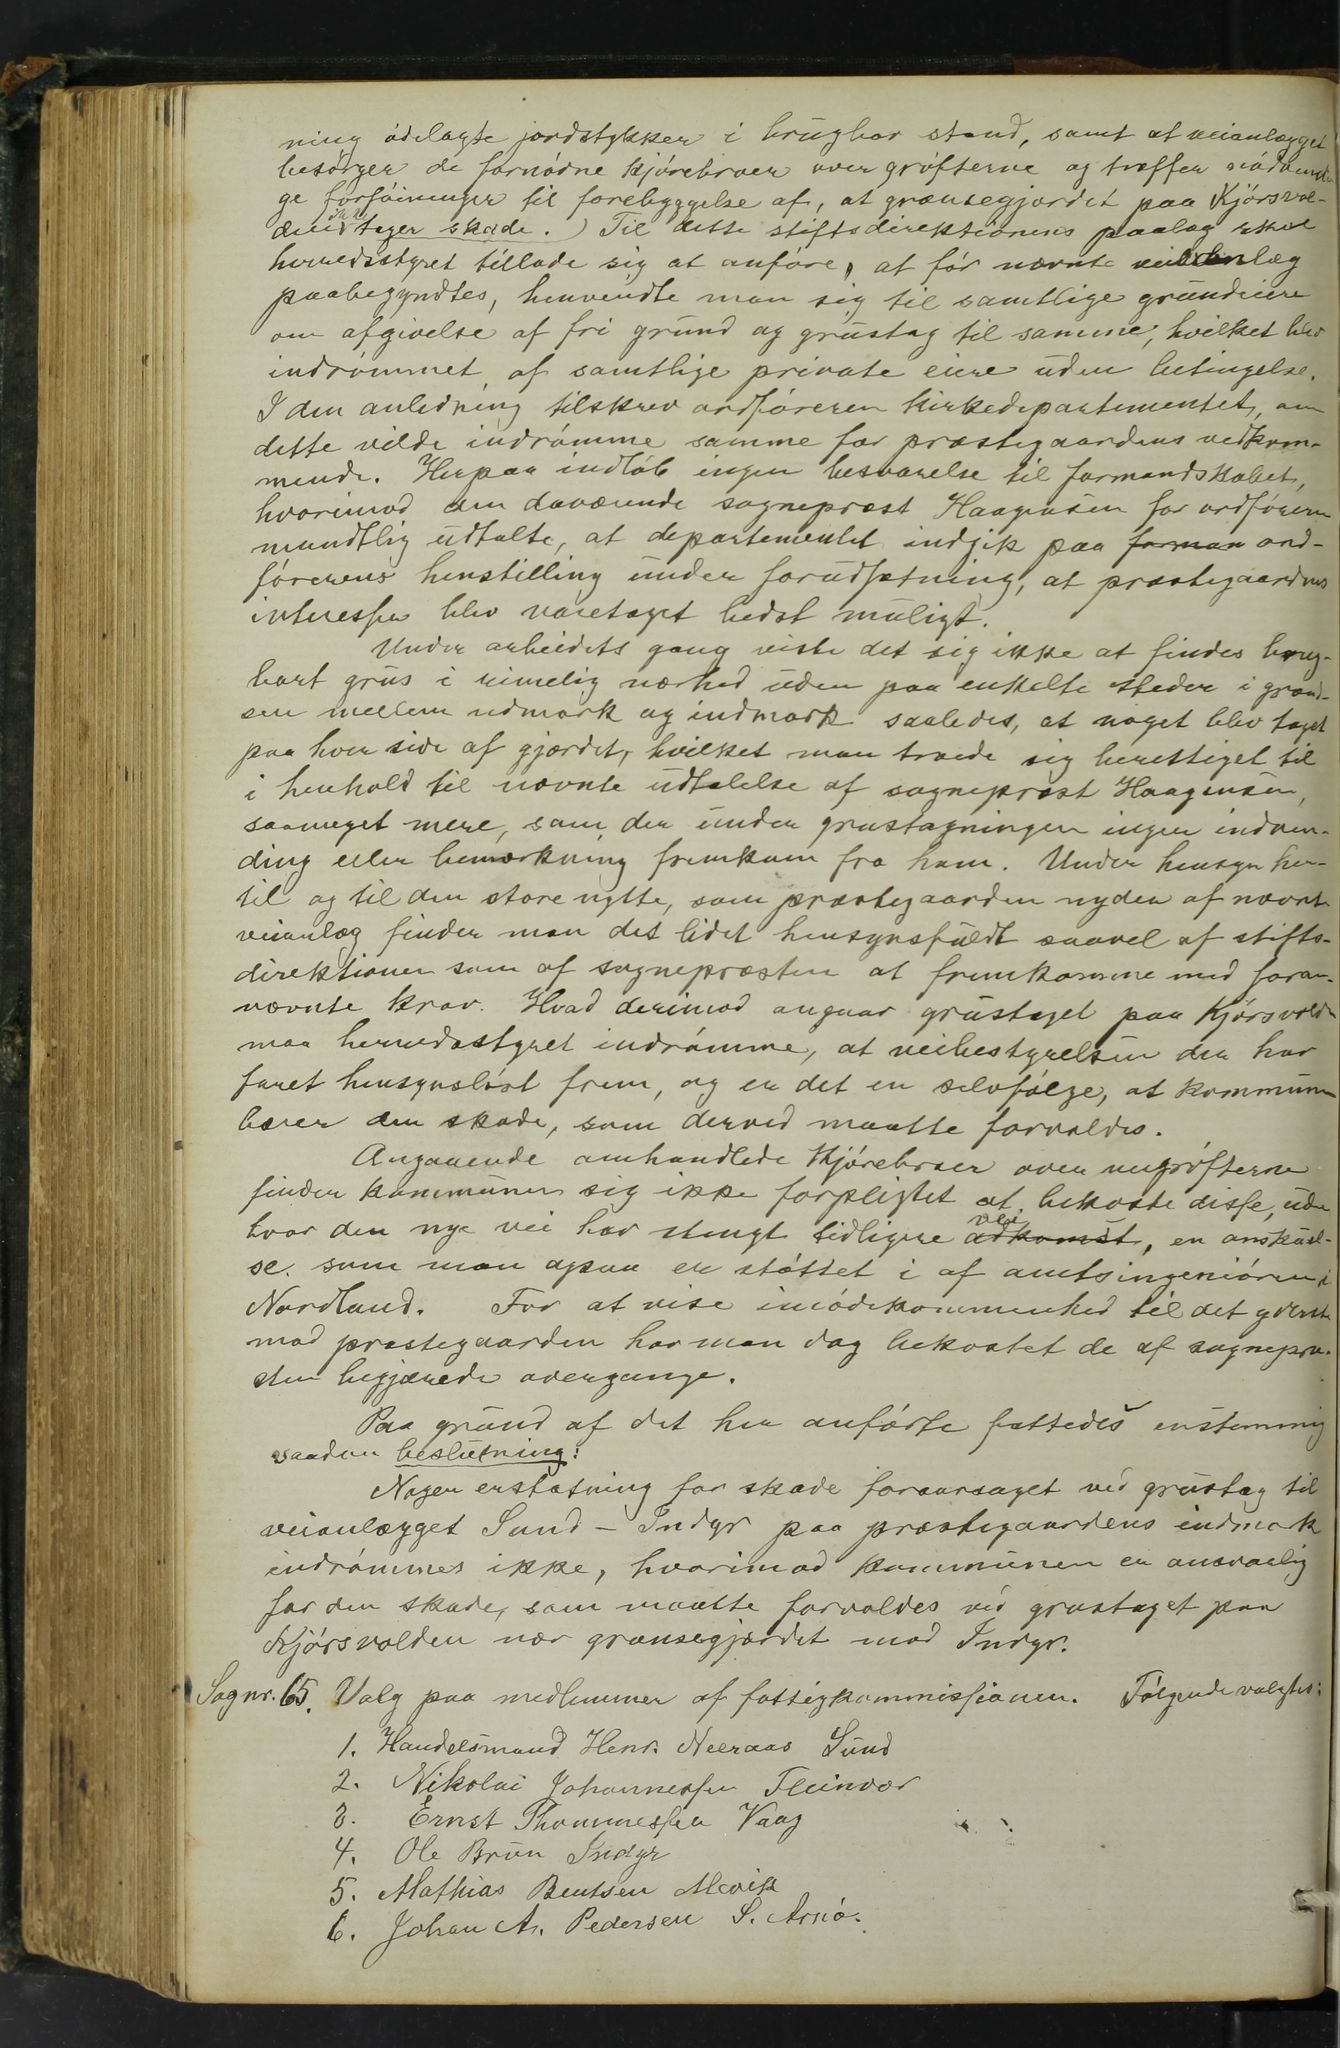 ning ødelagte jordstykker i brugbar stand, samt at veianlægget
besørger de fornødne kjørebroer over grøfterne og træffer nødvendi-
ge forføininger til forebyggelse af, at grænsegjærdet paa Kjørsvol-
den ikke tager skade.) Til dette stiftsdirektionens paalæg skal
herredsstyret tillade sig at anføre, at før nævnte veianlæg
paabegyndtes, henvendte man sig til samtlige grundeiere
om afgivelse af fri grund og grustag til samme, hvilket blev
indrømmet af samtlige private eiere uden betingelse.
I den anledning tilskrev ordføreren kirkedepartementet, om
dette vilde indrømme samme for præstegaardens vedkom-
mende. Herpaa indløb ingen besvarelse til formandskabet,
hvorimod den daværende sogneprest Haagensen for ordføreren
mundtlig udtalte, at departementet indgik paa forman ord-
førerens henstilling under forudsætning, at præstegaardens
interesser blev varetaget bedst muligt.
Under arbeidets gang viste det sig ikke at findes brug-
bart grus i rimelig nærhed uden paa enkelte steder i grænd-
sen mellem udmark og indmark saaledes, at noget blev taget
paa hver side af gjærdet, hvilket man troede sig berettiget til
i henhold til nævnte udtalelse af sogneprest Haagensen,
saameget mere, som der under grustagningen ingen indven-
ding eller bemærkning fremkom fra ham. Under hensyn her-
til og til den store nytte, som præstegaarden nyder af nævnte
veianlæg finder man det lidet hensynsfuldt saavel af stifts-
direktionen som af sognepræsten at fremkomme med foran-
nævnte krav. Hvad derimod angaar grustaget paa Kjørsvolden
maa herredsstyret indrømme, at veibestyrelsen der har
faret hensynsløst frem, og er det en selvfølge, at kommunen
bærer den skade, som derved maatte forvoldes.
Angaaende omhandlede kjørebroer over veigrøfterne
finder kommunen sig ikke forpligtet at bekoste disse, uden
hvor den nye vei har stengt tidligere adkomst vei, en anskuel-
se som man ogsaa er støttet i af amtsingeniøren i
Nordland. For at vise imødekommenhed til det yderste
mod præstegaarden har man dog bekostet de af sognepræ-
sten begjærede overgange.
Paa grund af det her anførte fattedes enstemmig
saadan beslutning:
Nogen erstatning for skade foraarsaget ved grustag til
veianlægget Sund - Indyr paa præstegaardens indmark
indrømmes ikke, hvorimod kommunen er ansvarlig
for den skade, som maatte forvoldes ved grustaget paa
Kjørsvolden nær grænsegjærdet mod Indyr.
Sag nr. 65. Valg paa medlemmer af fattigkommissionen. Følgende valgtes:
1. Handelsmand Henr. Neeraas Sund
2. Nikolai Johannessen Fleinvær
3. Ernst Thommessen Vaag
4. Ole Brun Indyr
5. Mathias Bentsen Mevik
6. Johan A. Pedersen S. Arnø.